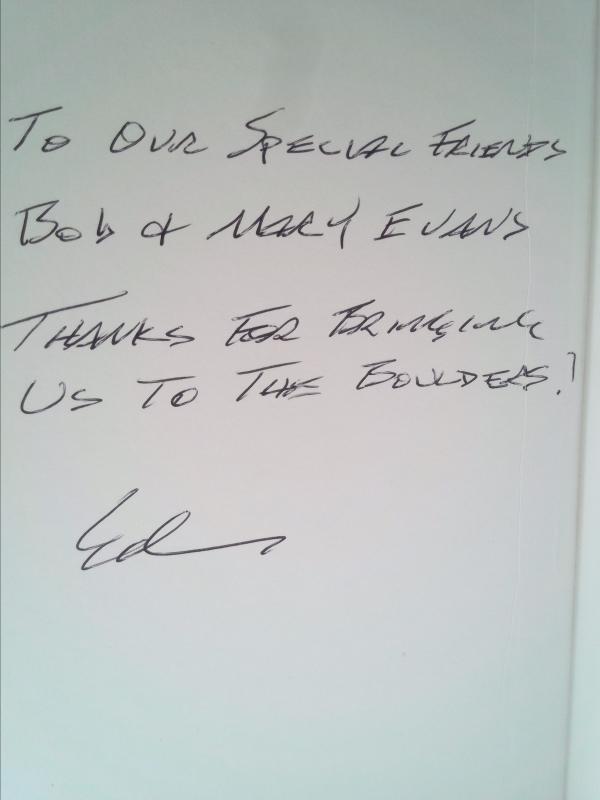 To Our Special Friends
Bob & Mary Evans
Thanks For Bringing
Us To The Boulders!
Ed